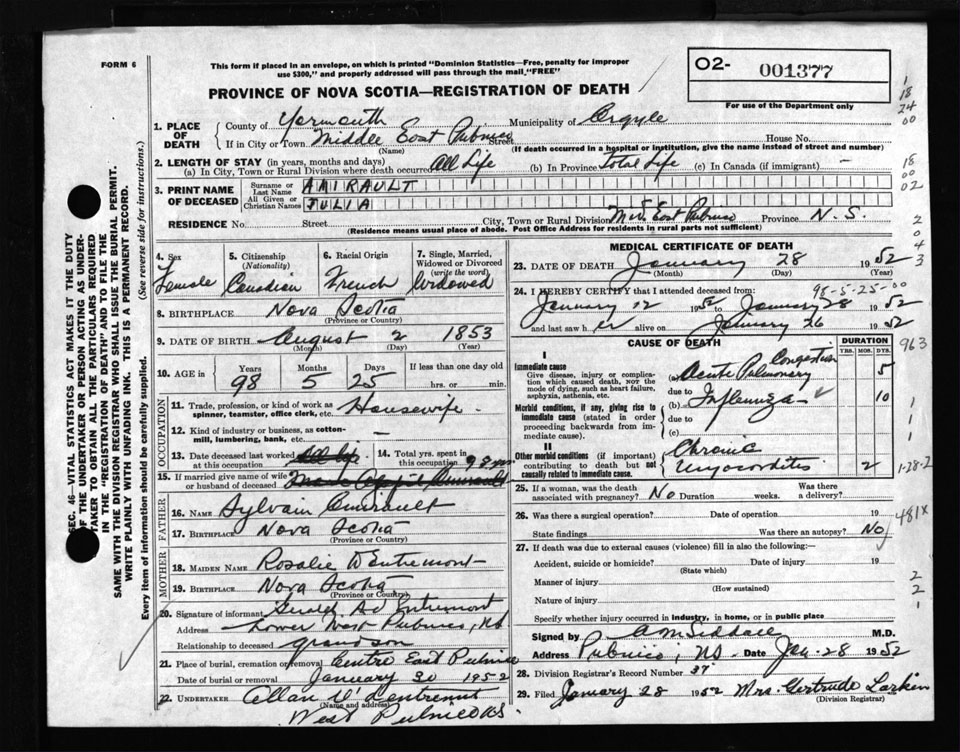 FORM 6
This form if placed in an envelope, on which is printed "Dominion Statistics—Free, penalty for improper
use $300," and properly addressed will pass through the mail "FREE"
O2- 001377
For use of the Department only
PROVINCE OF NOVA SCOTIA—REGISTRATION OF DEATH
1. PLACE OF DEATH
County of Yarmouth Municipality of Argyle
If in City or Town Middle East Pubnico Street House No.
(Name) (If death occurred in a hospital or institution, give the name instead of street and number)
2. LENGTH OF STAY (in years, months and days)
(a) In City, Town or Rural Division where death occurred All Life (b) In Province Total Life (c) In Canada (if immigrant) —
3. PRINT NAME OF DECEASED
Surname or Last Name AMIRAULT
All Given or Christian Names JULIA
RESIDENCE No. Street City, Town or Rural Division Mid. East Pubnico Province N.S.
(Residence means usual place of abode. Post Office Address for residents in rural parts not sufficient)
4. Sex Female
5. Citizenship (Nationality) Canadian
6. Racial Origin French
7. Single, Married, Widowed or Divorced (write the word) Widowed
8. BIRTHPLACE Nova Scotia
(Province or Country)
9. DATE OF BIRTH August 2 1853
(Month) (Day) (Year)
10. AGE in Years 98 Months 5 Days 25 If less than one day old
hrs. or min.
OCCUPATION
11. Trade, profession, or kind of work as
spinner, teamster, office clerk, etc. Housewife
12. Kind of industry or business, as cotton-
mill, lumbering, bank, etc. —
13. Date deceased last worked at this occupation All life
14. Total yrs. spent in this occupation 98 yrs
15. If married give name of wife
or husband of deceased
FATHER
16. NAME Sylvain Amirault
17. BIRTHPLACE Nova Scotia
(Province or Country)
MOTHER
18. MAIDEN NAME Rosalie D'Entremont
19. BIRTHPLACE Nova Scotia
(Province or Country)
20. Signature of informant Gerald A. d'Entremont
Address Lower West Pubnico, NS
Relationship to deceased grandson
21. Place of burial, cremation or removal Centre East Pubnico
Date of burial or removal January 30 1952
22. UNDERTAKER Allan V. d'Entremont
(Name and address)
West Pubnico NS.
MEDICAL CERTIFICATE OF DEATH
23. DATE OF DEATH January 28 1952
(Month) (Day) (Year)
98-5-25-00
24. I HEREBY CERTIFY that I attended deceased from:
January 12 1952 to January 28 1952
and last saw her alive on January 26 1952
CAUSE OF DEATH
DURATION
YRS. MOS. DYS.
I
Immediate cause
Give disease, injury or complica-
tion which caused death, NOT the
mode of dying, such as heart failure,
asphyxia, asthenia, etc.
(a) Acute Pulmonary Congestion 5
due to
(b) Influenza 10
due to
(c)
Morbid conditions, if any, giving rise to
immediate cause (stated in order
proceeding backwards from im-
mediate cause).
II
Other morbid conditions (if important)
contributing to death but not
causally related to immediate cause.
Chronic
Myocarditis 2
25. If a woman, was the death
associated with pregnancy? No Duration weeks. Was there
a delivery?
26. Was there a surgical operation? Date of operation 19
State findings Was there an autopsy? No
27. If death was due to external causes (violence) fill in also the following:—
Accident, suicide or homicide? Date of injury 19
(State which)
Manner of injury
(How sustained)
Nature of injury
Specify whether injury occurred in industry, in home, or in public place
Signed by M.D.
Address Pubnico, NS. Date Jan 28 1952
28. Division Registrar's Record Number 37
29. Filed January 28 1952 Mrs. Gertrude Larkin
(Division Registrar)
SEC. 46—VITAL STATISTICS ACT MAKES IT THE DUTY
OF THE UNDERTAKER OR PERSON ACTING AS UNDER-
TAKER TO OBTAIN ALL THE PARTICULARS REQUIRED
IN THE "REGISTRATION OF DEATH" AND TO FILE THE
SAME WITH THE DIVISION REGISTRAR WHO SHALL ISSUE THE BURIAL PERMIT.
WRITE PLAINLY WITH UNFADING INK. THIS IS A PERMANENT RECORD.
Every item of information should be carefully supplied. (See reverse side for instructions.)
1
18
24
00
18
00
02
2
0
4
3
963
1
1
1
1-28-2
481X
2
2
1